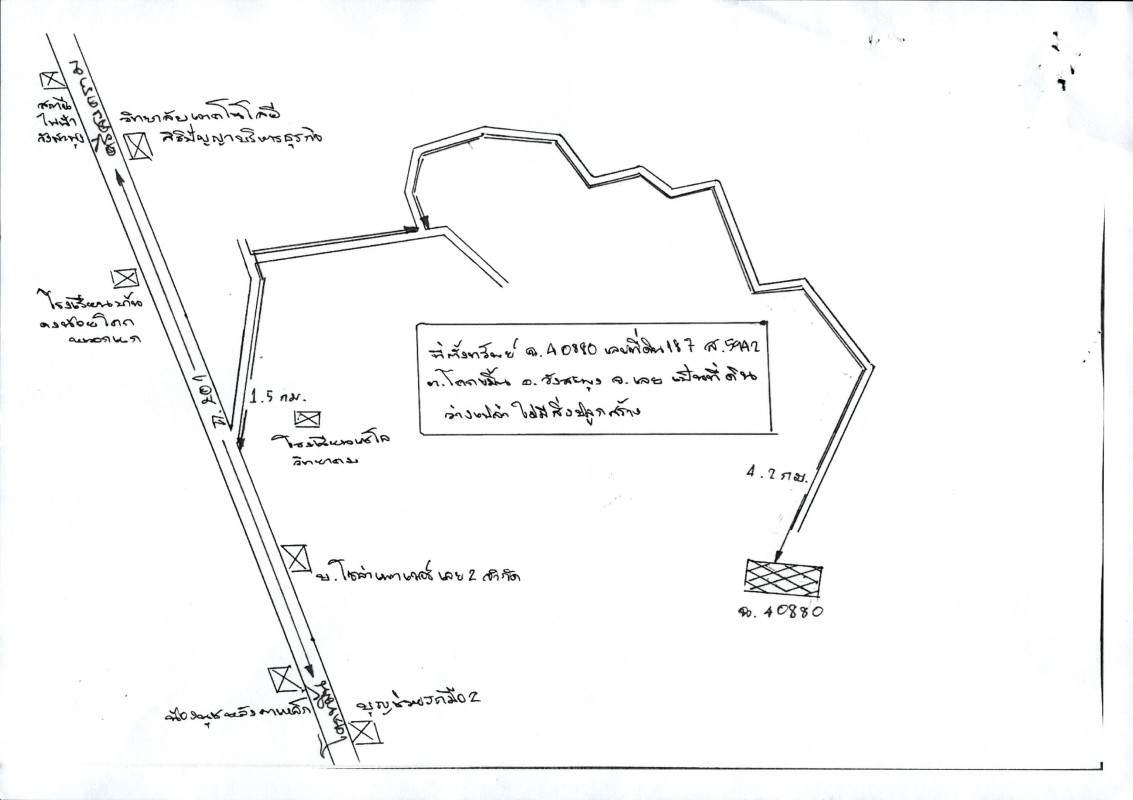 สถานี
ไฟฟ้า
วังสะพุง
วิทยาลัยเทคโนโลยี
สิริปัญญาบริหารธุรกิจ
โรงเรียนบ้าน
ท.201
1.5 กม.
โรงเรียน
วิทยาคม
ที่ตั้งทรัพย์ ฉ.40880 เลขที่ดิน 187 ส.5942
ต.โคกขมิ้น อ.วังสะพุง จ.เลย เป็นที่ดิน
ว่างเปล่า ไม่มีสิ่งปลูกสร้าง
4.2 กม.
บ.โซล่าเพาเวอร์ เลย 2 จำกัด
ฉ.40880
น้องนุชหลังคาเหล็ก
บุญช่วยรถมือ2